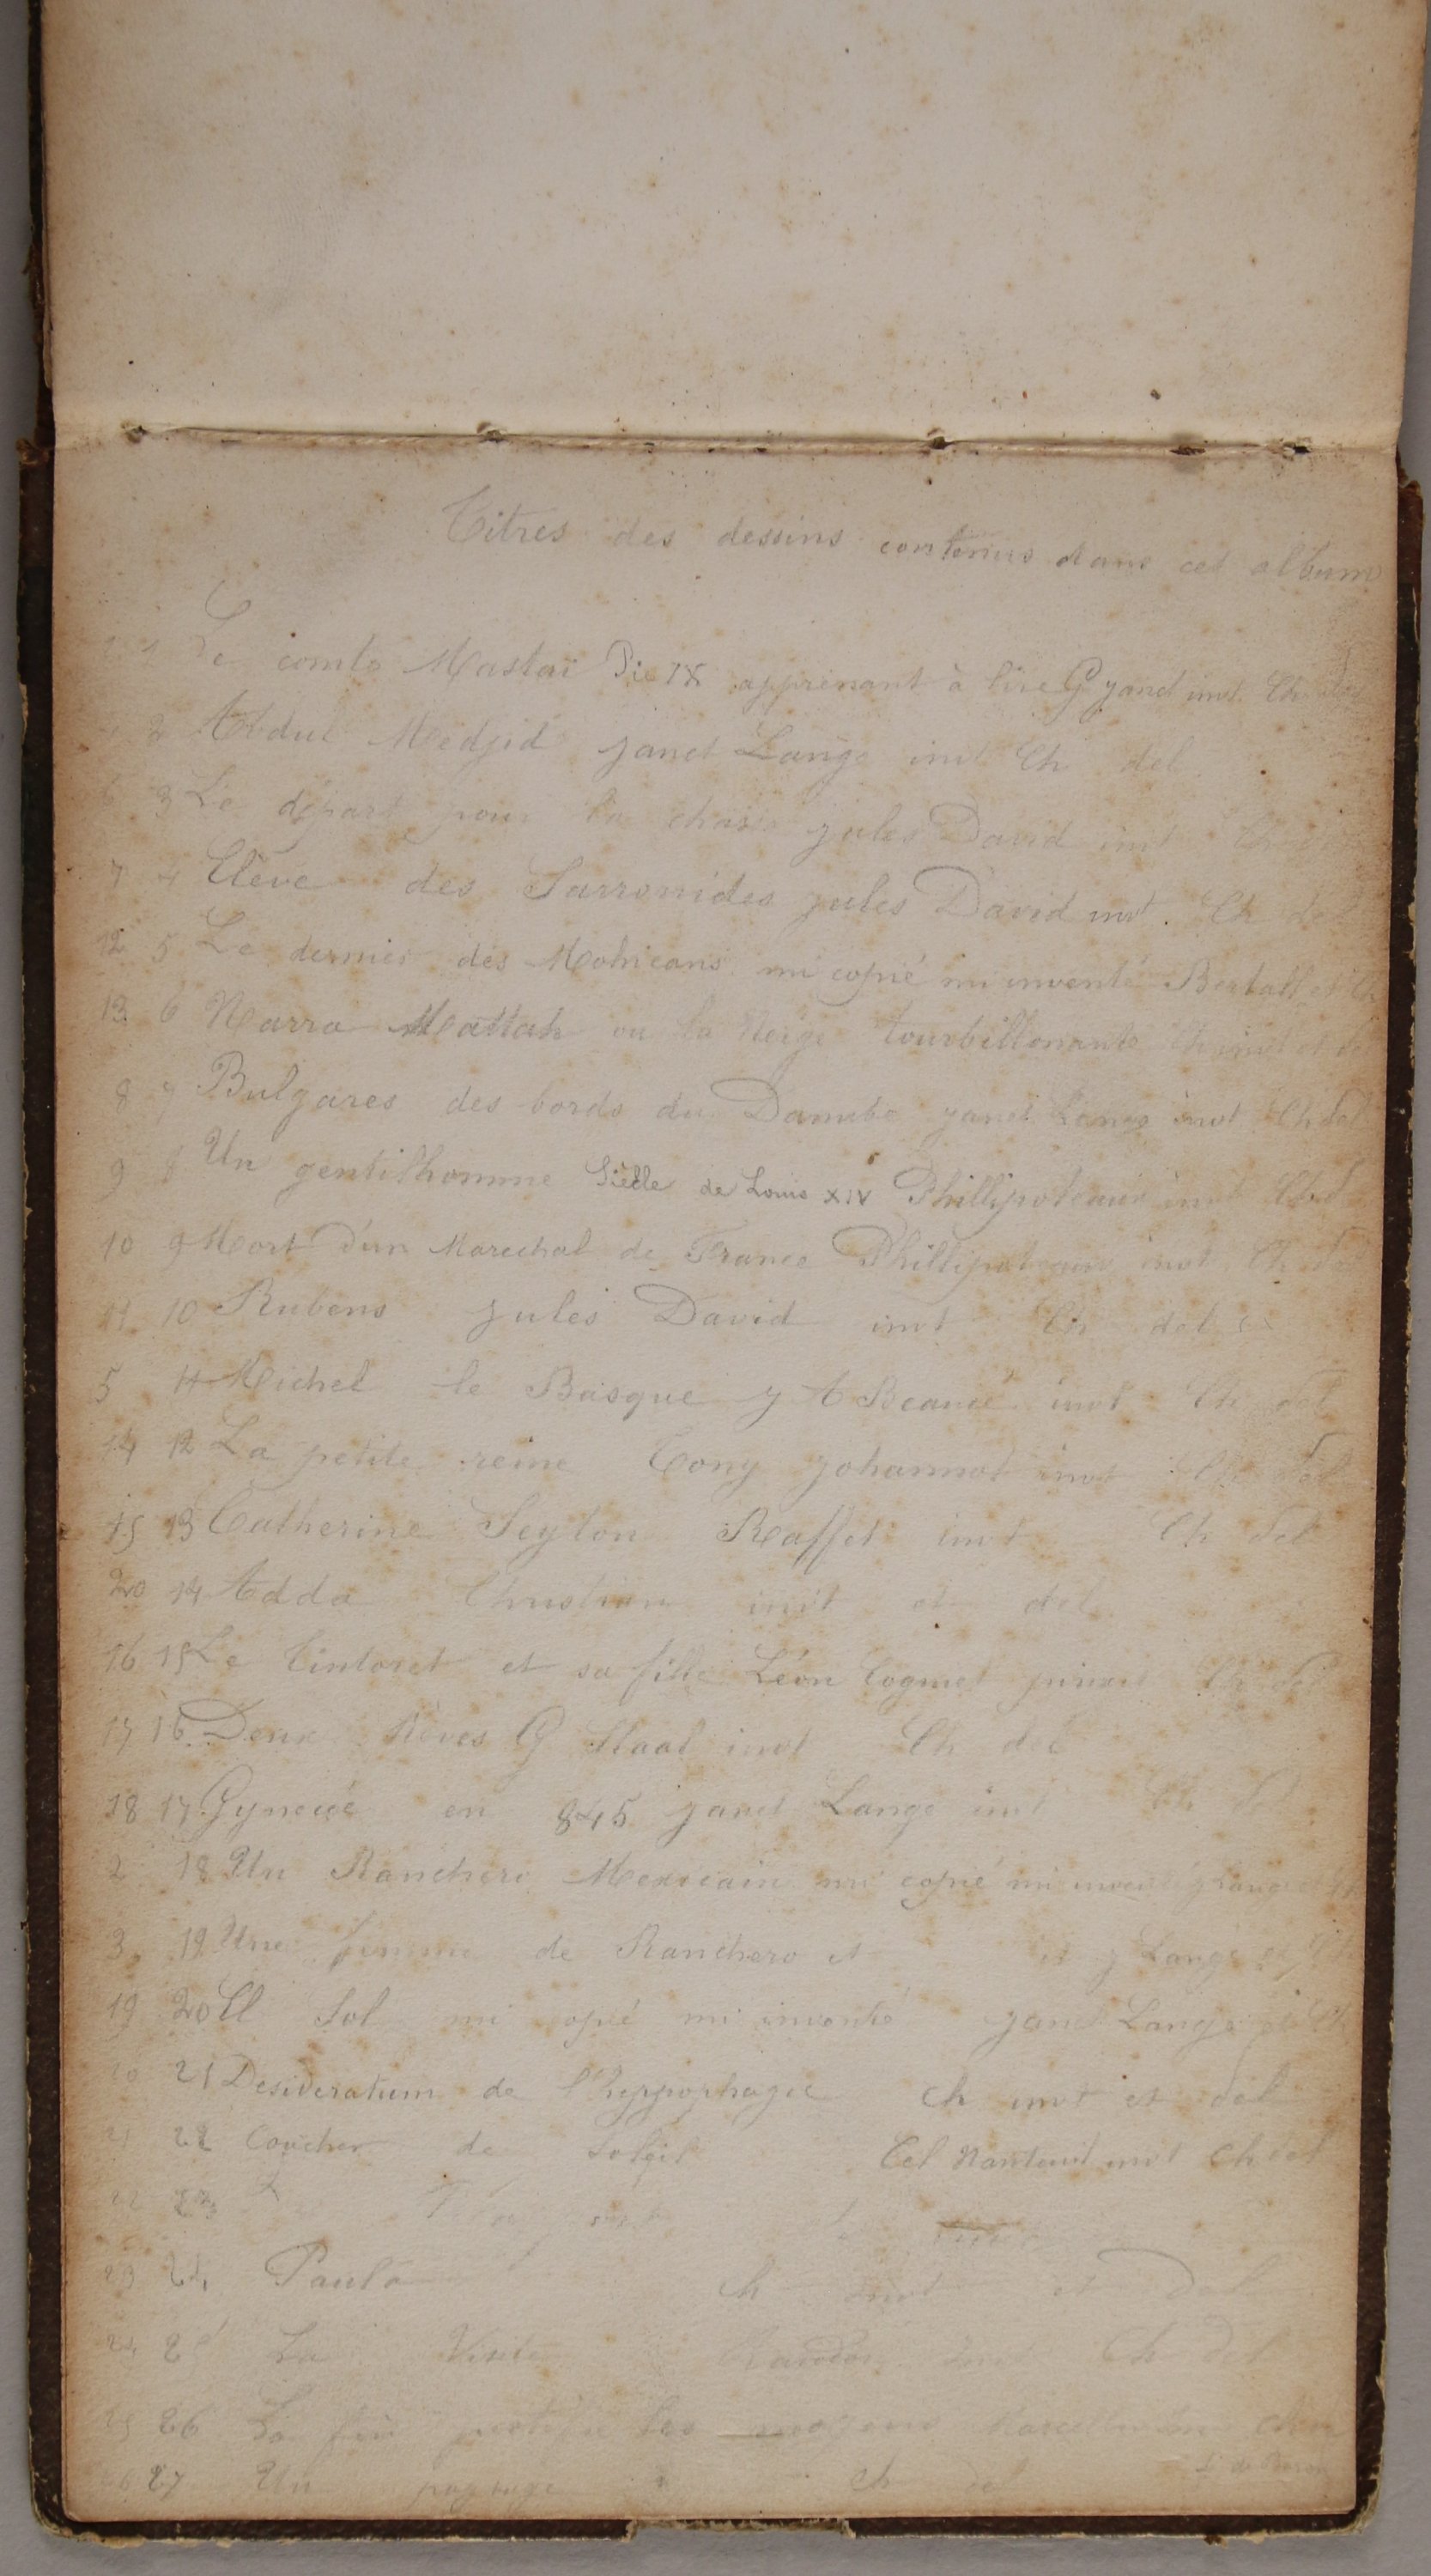 Titres des dessins contenus dans cet album
1 Le comte Mastaï Pie IX apprenant à lire G janet invt Ch
2 Abdul Medjid janet Lange invt Ch del
6 3 Le départ pour la chasse jules David invt Ch
7 4 Elève des Sarronides jules David invt. Ch del
12 5 Le dernier des Mohicans mi copié mi inventé Bertall et Ch
13 6 Narra Mattah ou la Neige tourbillonante Ch invt et del
8 7 Bulgares des bords du Danube janet Lange invt Ch del
9 8 Un gentilhomme Siècle de Louis XIV Phillipoteaux invt Ch d
10 9 Mort d'un Marechal de France Phillipoteaux invt Ch de
11 10 Rubens jules David invt Ch del
5 11 Michel le Basque j A Beaucé invt Ch del
14 12 La petite reine Tony johannot invt Ch del
15 13 Catherine Seyton Raffet invt Ch del
20 14 Adda Christian invt et del
16 15 Le Tintoret et sa fille Léon Cogniet pinxit Ch del
17 16 Deux Rêves G Staal invt Ch del
18 17 Gynecée en 845 janet Lange invt Ch del
2 18 Un Ranchero Mexicain mi copié mi inventé j Lange
3 19 Une femme de Ranchero et j Lange
19 20 El Sol mi copié mi inventé janet Lange et Ch
20 21 Desideratum de l'hyppophagie Ch invt et del
21 22 Coucher de Soleil Cel Nanteuil invt Ch del
22 23
23 24 Paula Ch invt et Del
24 25 La Visite Randon invt Ch Del
25 26 La fin justifie les moyens
26 27 Un paysage Ch del